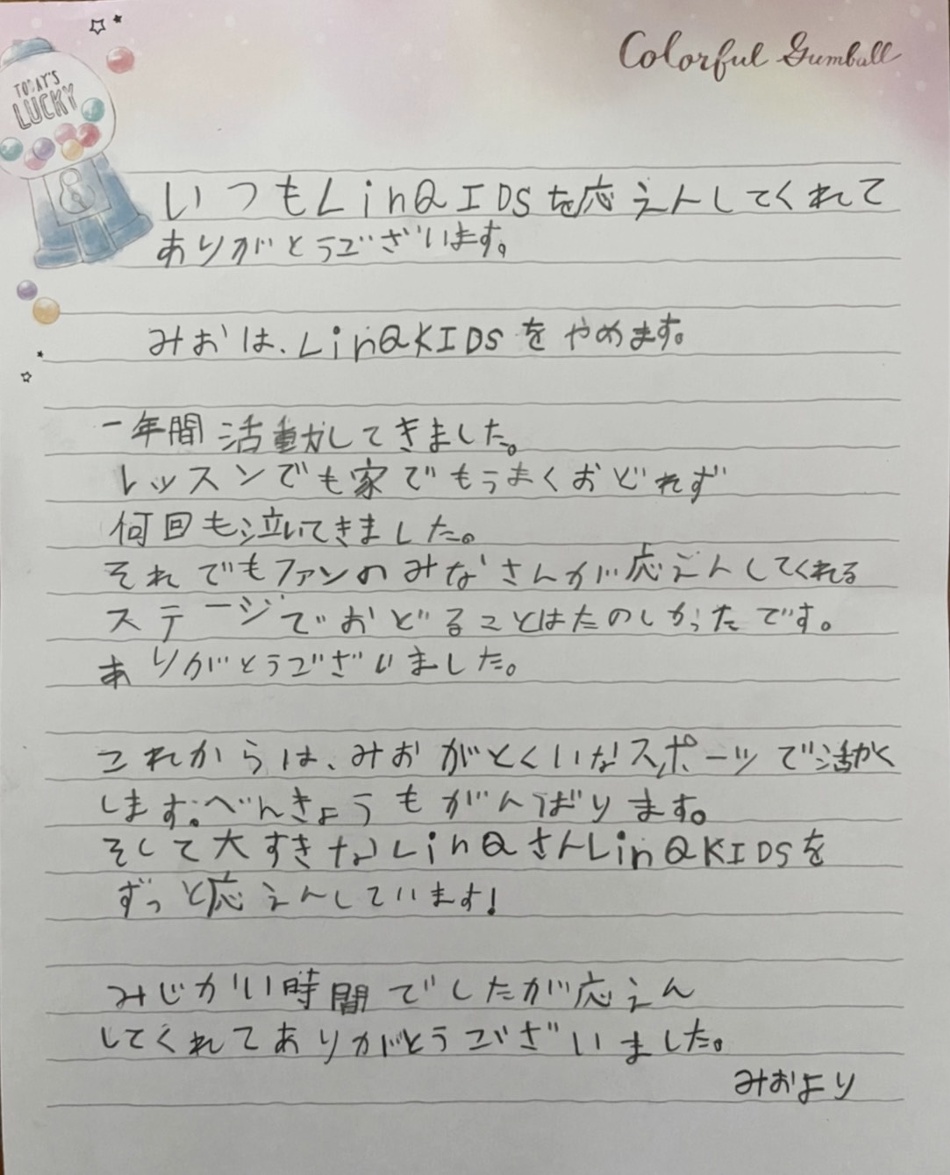 Colorful Gumball
TODAY'S
LUCKY
いつもLinQIDSを応えんしてくれて
ありがとうございます。
みおは、LinQKIDSをやめます。
一年間活動してきました。
レッスンでも家でもうまくおどれず
何回も泣いてきました。
それでもファンのみなさんが応えんしてくれる
ステージでおどることはたのしかったです。
ありがとうございました。
これからは、みおがとくいなスポーツで活かく
します。べんきょうもがんばります。
そして大すきなLinQさんLinQKIDSを
ずっと応えんしています!
みじかい時間でしたが応えん
してくれてありがとうございました。
みおより